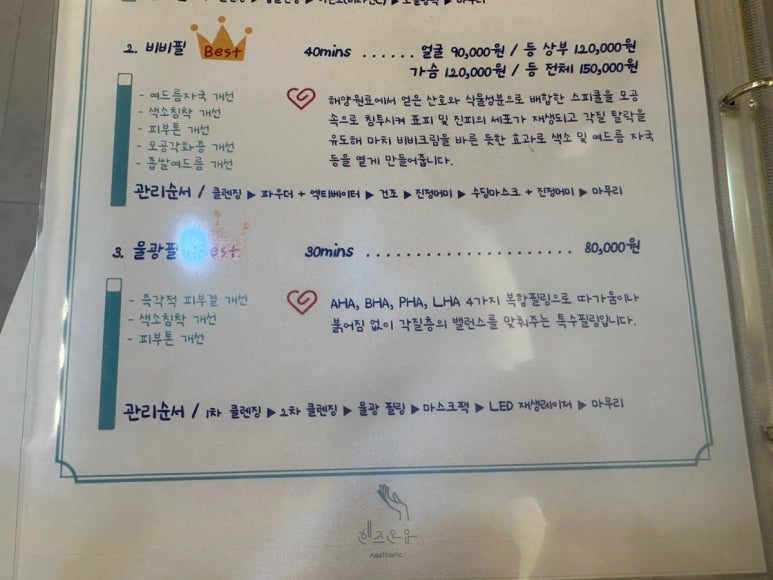 2. 비비필 Best 40mins ...... 얼굴 90,000원 / 등 상부 120,000원
가슴 120,000원 / 등 전체 150,000원
- 여드름자국 개선
- 색소침착 개선
- 피부톤 개선
- 모공각화증 개선
- 좁쌀여드름 개선
해양원료에서 얻은 산호와 식물성분으로 배합한 스피큘을 모공
속으로 침투시켜 표피 및 진피의 세포가 재생되고 각질 탈락을
유도해 마치 비비크림을 바른 듯한 효과로 색소 및 여드름 자국
등을 옅게 만들어줍니다.
관리순서 / 클렌징 ▶ 파우더 + 액티베이터 ▶ 건조 ▶ 진정머미 ▶ 수딩마스크 + 진정머미 ▶ 마무리
3. 물광필 Best 30mins ........................ 80,000원
- 즉각적 피부결 개선
- 색소침착 개선
- 피부톤 개선
AHA, BHA, PHA, LHA 4가지 복합필링으로 따가움이나
붉어짐 없이 각질층의 밸런스를 맞춰주는 특수필링입니다.
관리순서 / 1차 클렌징 ▶ 2차 클렌징 ▶ 물광 필링 ▶ 마스크팩 ▶ LED 재생레이저 ▶ 마무리
핸즈온유
Aesthetic